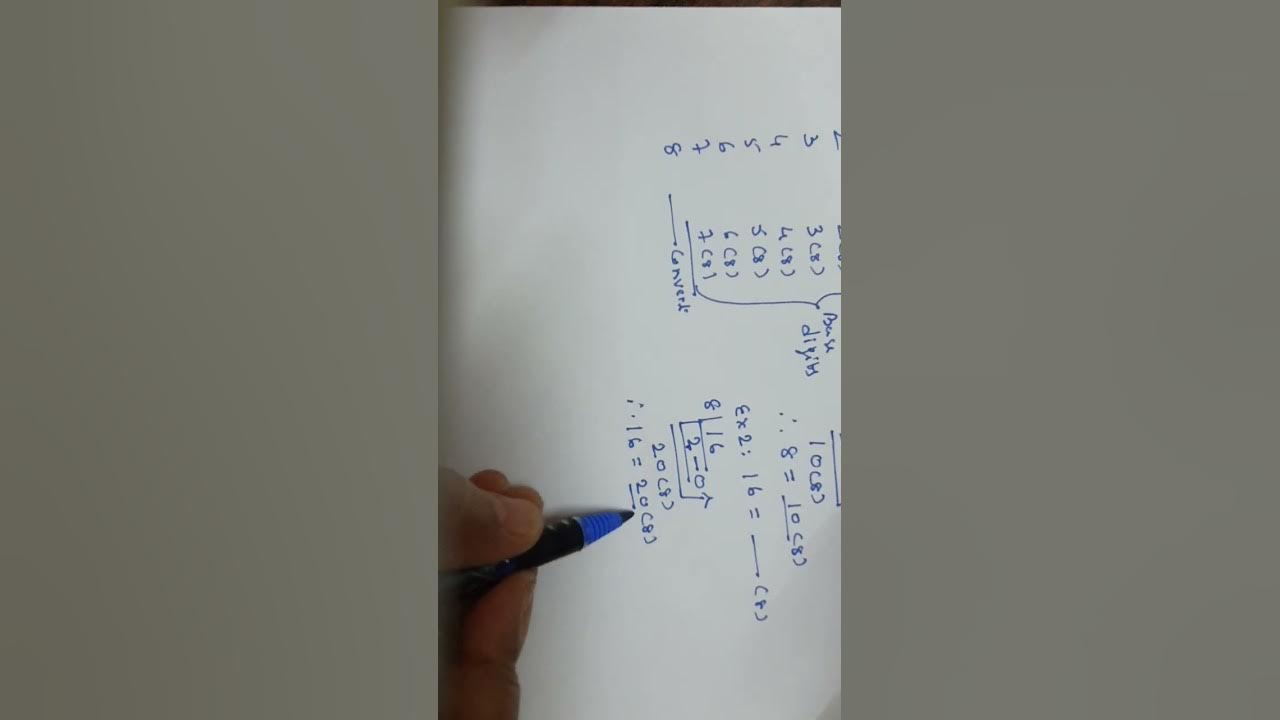 3 3(8)
4 4(8)
5 5(8)
6 6(8)
7 7(8)
8 —— Convert
Base
digits
10(8)
∴ 8 = 10(8)
Ex2: 16 = —— (8)
8 | 16
2 — 0
20(8)
∴ 16 = 20(8)